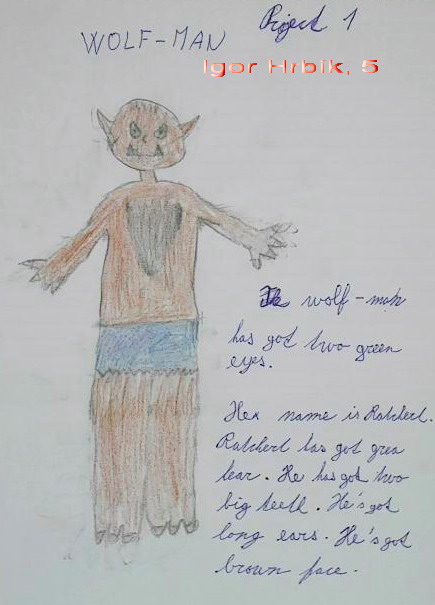 Project 1
WOLF-MAN
Igor Hrbik, 5
wolf-man
has got two green
eyes.
Hex name is Ratcherl.
Ratcherl has got grea
lear. He has got two
big teeth. He's got
long ears. He's got
brown face.